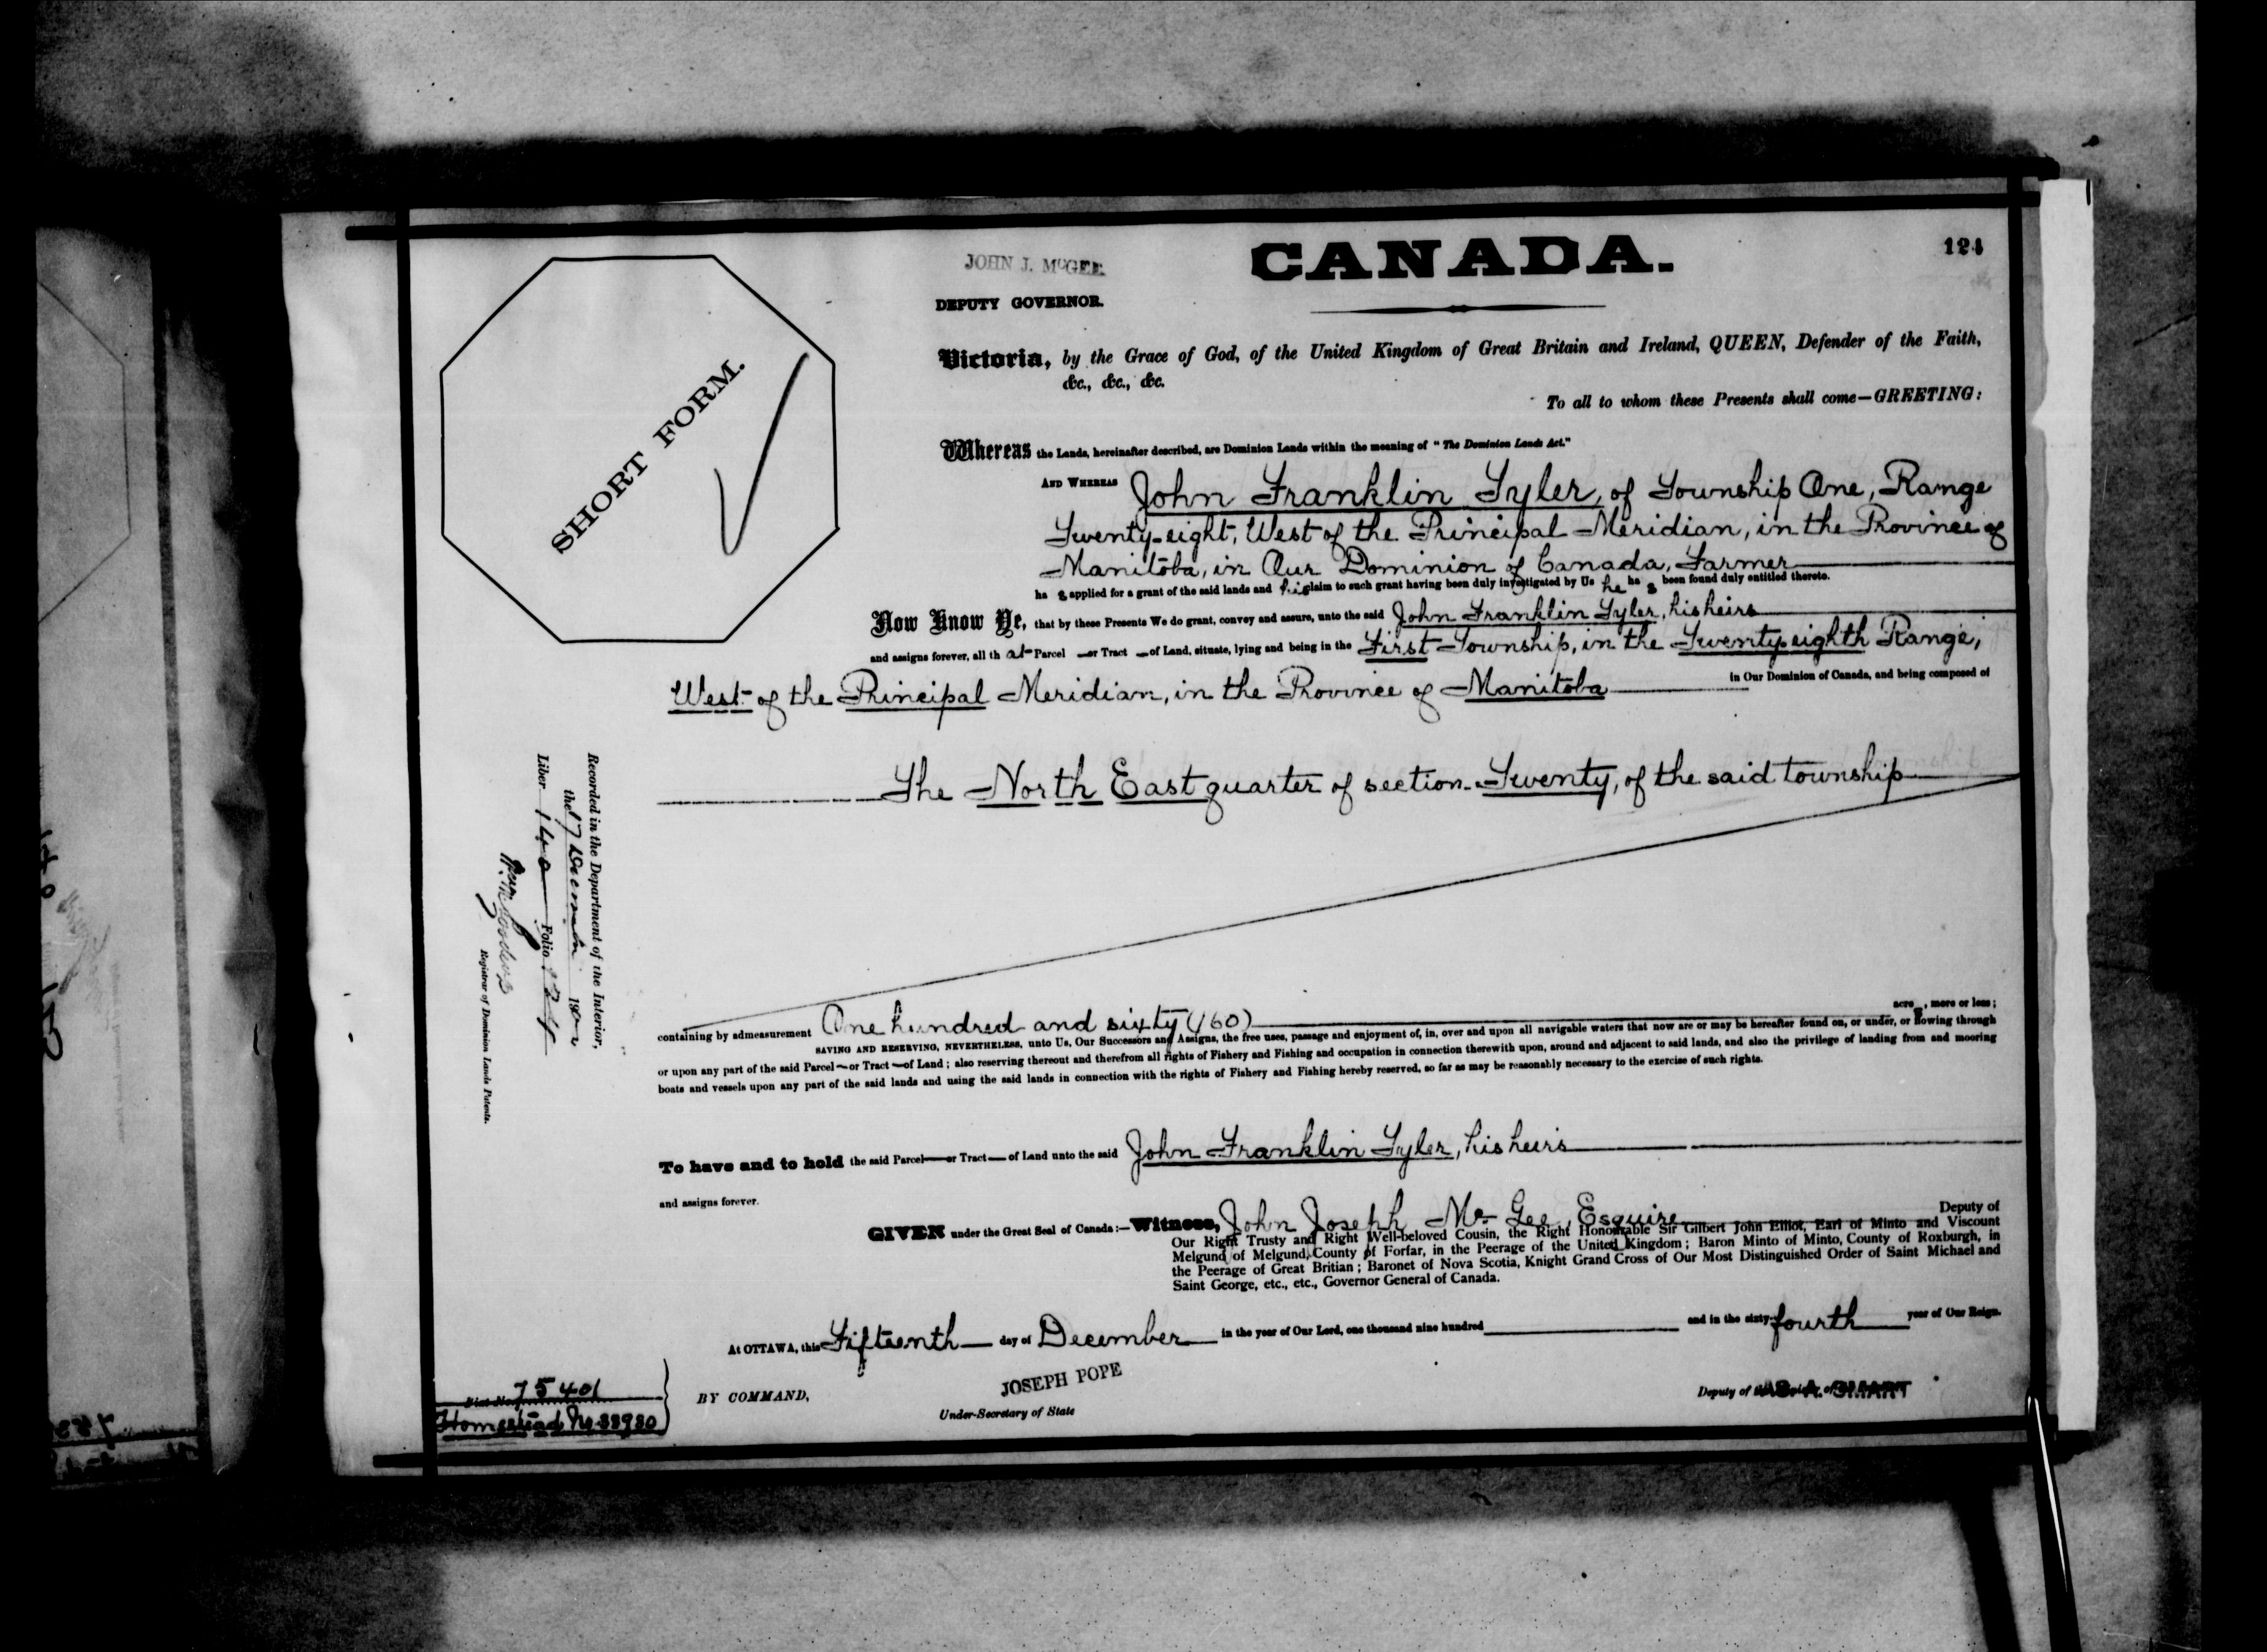 JOHN J. McGEE
DEPUTY GOVERNOR.
CANADA.
124
SHORT FORM.
Victoria, by the Grace of God, of the United Kingdom of Great Britain and Ireland, QUEEN, Defender of the Faith,
&c., &c., &c.
To all to whom these Presents shall come—GREETING:
Whereas the Lands, hereinafter described, are Dominion Lands within the meaning of "The Dominion Lands Act."
AND WHEREAS John Franklin Tyler, of Township One, Range
Twenty-eight, West of the Principal Meridian, in the Province of
Manitoba, in Our Dominion of Canada, Farmer
ha s applied for a grant of the said lands and his claim to such grant having been duly investigated by Us he ha s been found duly entitled thereto.
Now Know Ye, that by these Presents We do grant, convey and assure, unto the said John Franklin Tyler, his heirs
and assigns forever, all th at Parcel or Tract of Land, situate, lying and being in the First Township, in the Twenty-eighth Range,
West of the Principal Meridian, in the Province of Manitoba in Our Dominion of Canada, and being composed of
The North East quarter of section Twenty, of the said township
Recorded in the Department of the Interior,
the 17 December 190
Liber 140 Folio 124
Registrar of Dominion Lands Patents.
containing by admeasurement One hundred and sixty (160) acres, more or less;
SAVING AND RESERVING, NEVERTHELESS, unto Us, Our Successors and Assigns, the free uses, passage and enjoyment of, in, over and upon all navigable waters that now are or may be hereafter found on, or under, or flowing through
or upon any part of the said Parcel or Tract of Land; also reserving thereout and therefrom all rights of Fishery and Fishing and occupation in connection therewith upon, around and adjacent to said lands, and also the privilege of landing from and mooring
boats and vessels upon any part of the said lands and using the said lands in connection with the rights of Fishery and Fishing hereby reserved, so far as may be reasonably necessary to the exercise of such rights.
To have and to hold the said Parcel or Tract of Land unto the said John Franklin Tyler, his heirs
and assigns forever.
GIVEN under the Great Seal of Canada:—Witness, John Joseph McGee, Esquire Deputy of
Our Right Trusty and Right Well-beloved Cousin, the Right Honorable Sir Gilbert John Elliot, Earl of Minto and Viscount
Melgund of Melgund, County of Forfar, in the Peerage of the United Kingdom; Baron Minto of Minto, County of Roxburgh, in
the Peerage of Great Britian; Baronet of Nova Scotia, Knight Grand Cross of Our Most Distinguished Order of Saint Michael and
Saint George, etc., etc., Governor General of Canada.
At OTTAWA, this Fifteenth day of December in the year of Our Lord, one thousand nine hundred and in the sixty-fourth year of Our Reign.
75401
Homestead No 38980
BY COMMAND,
JOSEPH POPE
Under-Secretary of State
Deputy of the SMART